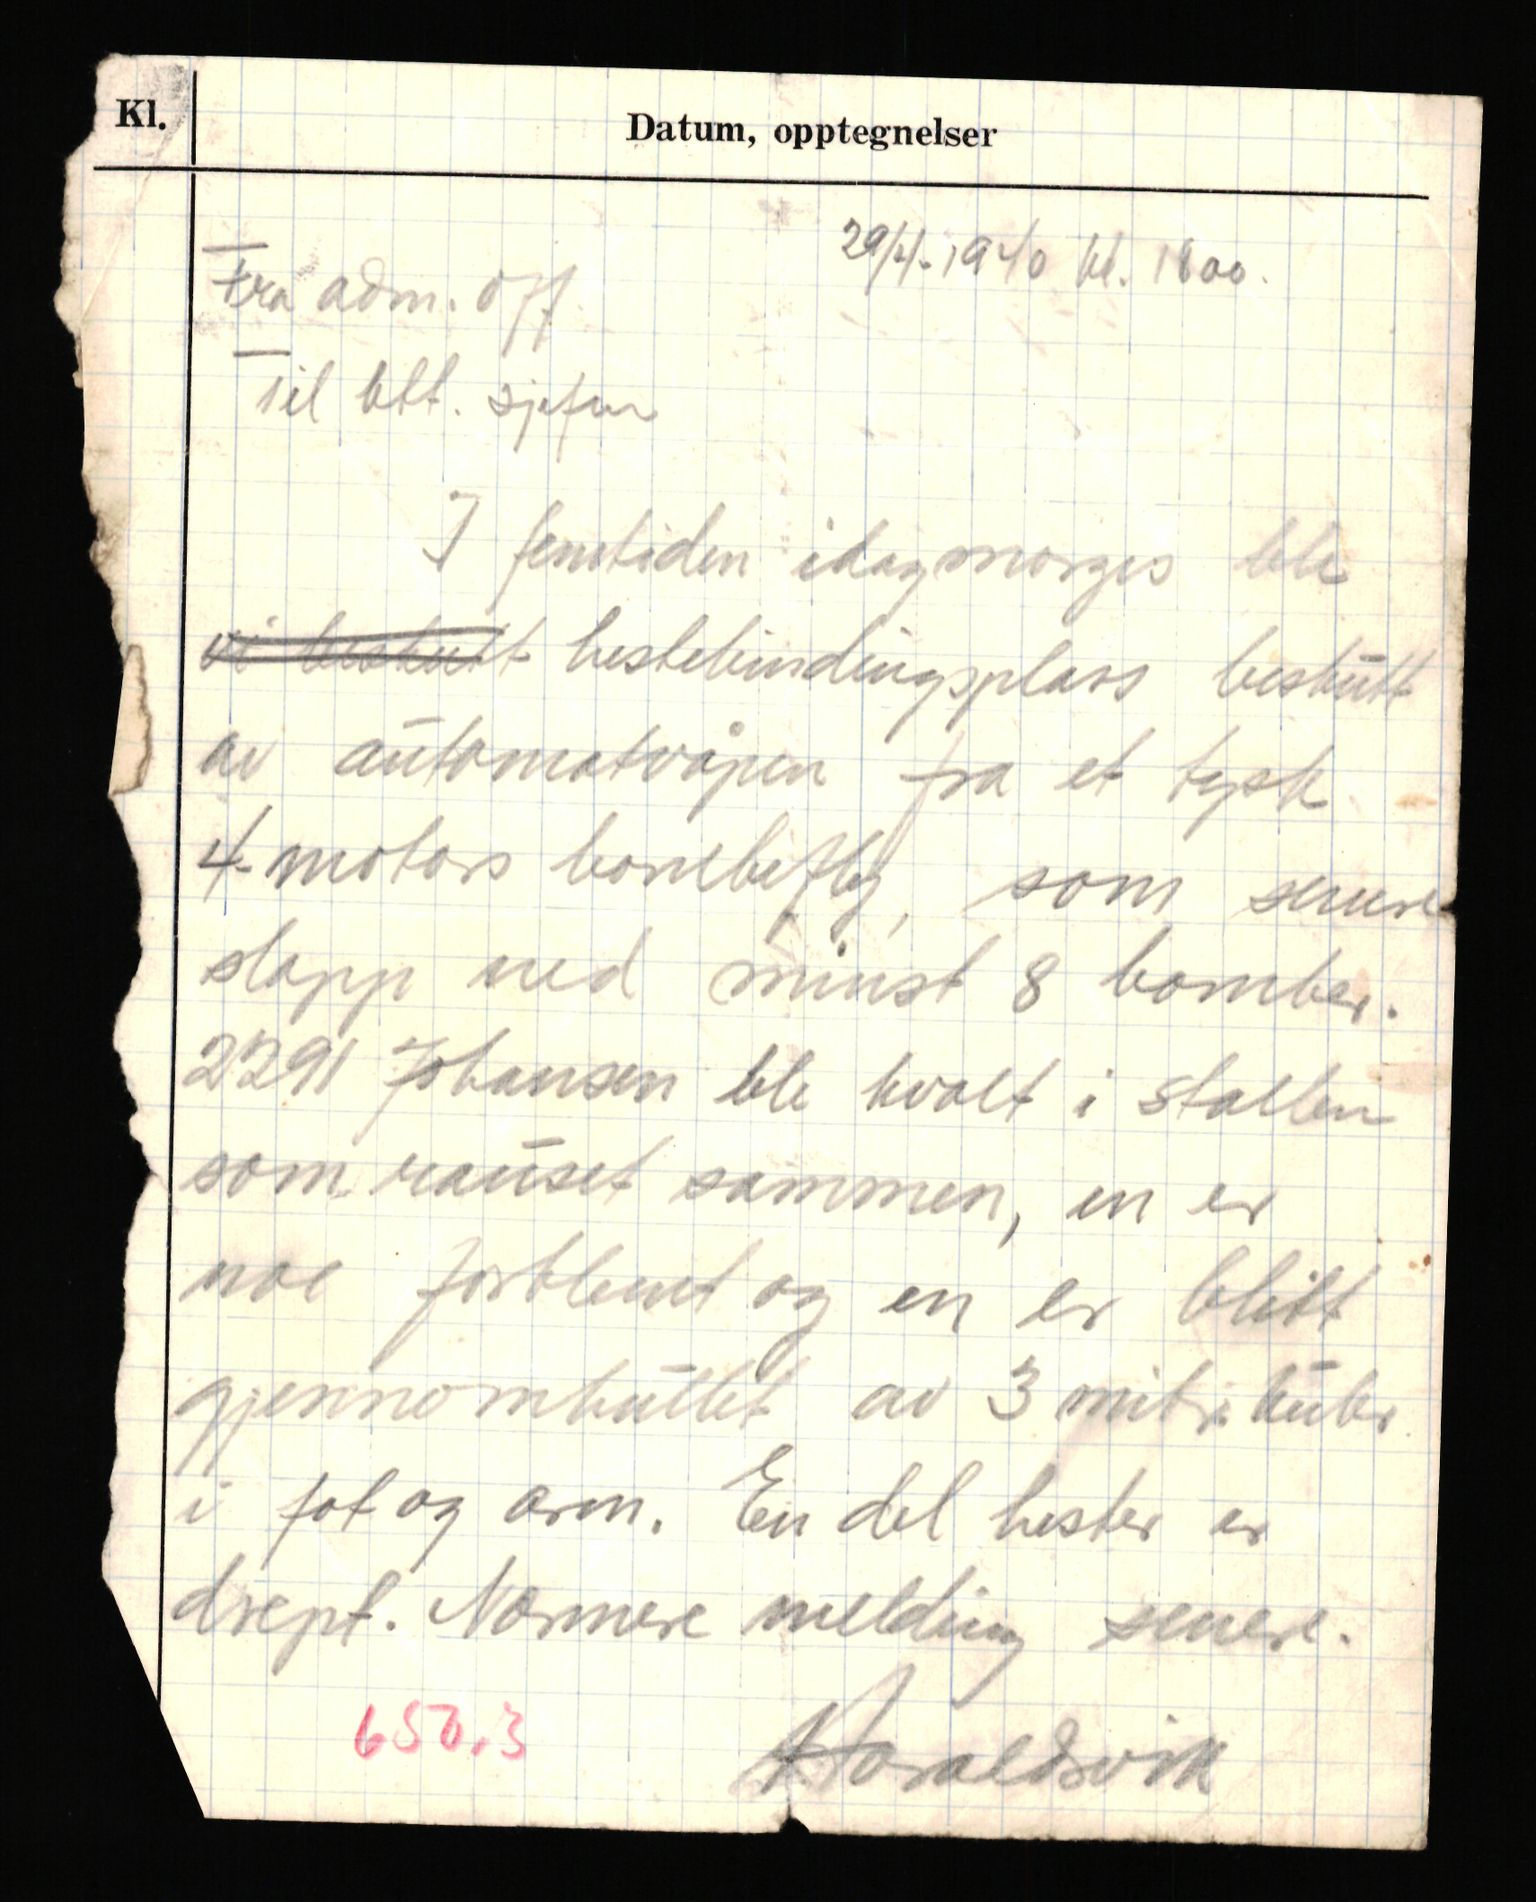 Kl.
Datum, opptegnelser
29/4-1940 kl. 1800.
Fra adm. off
Til btt. sjefen
I femtiden idagmorges ble
vi beskutt hestebindingsplass beskutt
av automatvåpen fra et tysk
4-motors bombefly, som senere
slapp ned minst 8 bomber.
2291 Johansen ble kvalt i stallen
som rauset sammen, en er
noe forbbent og en er blitt
gjennomhullet av 3 mitr. kuler
i fot og arm. En del hester er
drept. Nærmere melding senere.
Haraldsvik
650.3